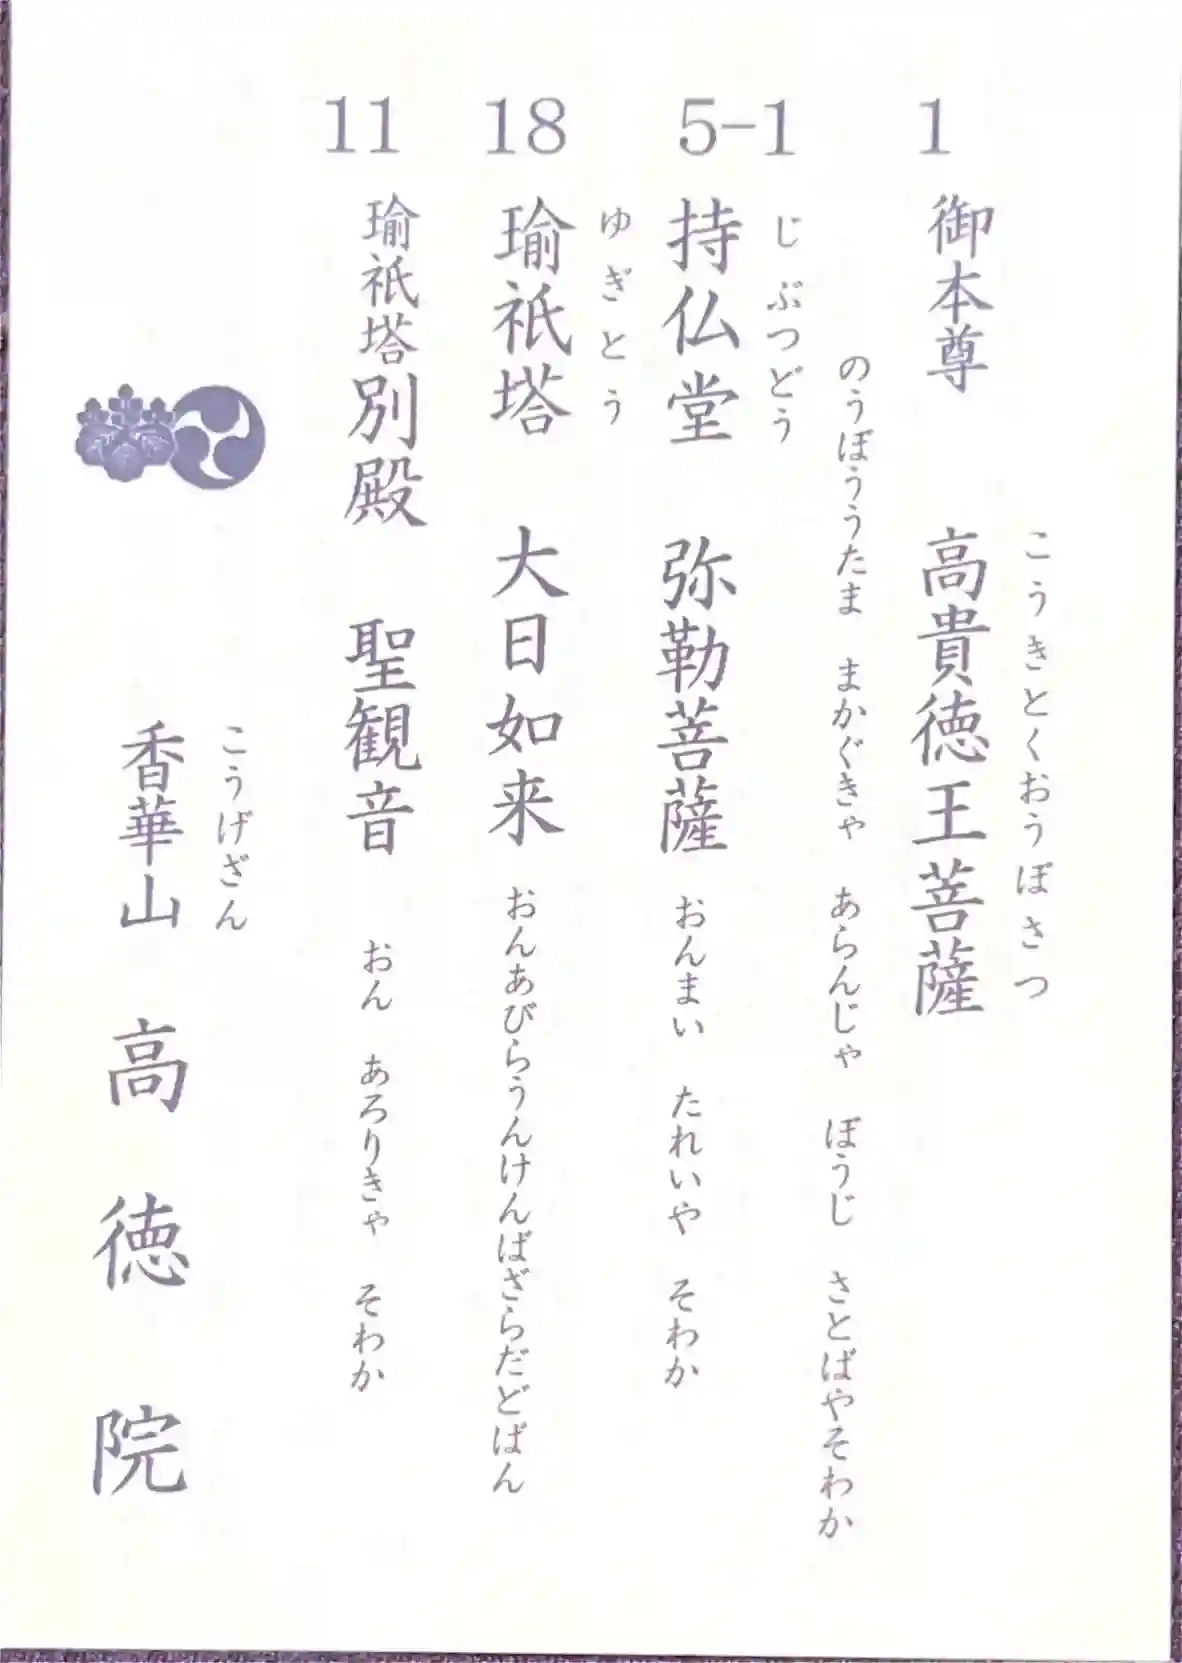 1 御本尊 高貴徳王菩薩
こうきとくおうぼさつ
のうぼううたま まかぐきゃ あらんじゃ ぼうじ さとばやそわか
5-1 持仏堂 弥勒菩薩 おんまい たれいや そわか
じぶつどう
18 瑜祇塔 大日如来 おんあびらうんけんばざらだどばん
ゆぎとう
11 瑜祇塔別殿 聖観音 おん あろりきゃ そわか
こうげざん
香華山 高徳院